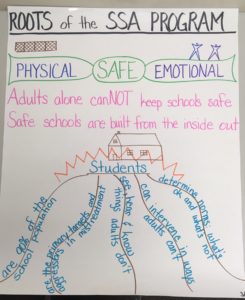 ROOTS of the SSA PROGRAM
PHYSICAL SAFE EMOTIONAL
Adults alone canNOT keep schools safe
Safe schools are built from the inside out
Students
are 90% of the
school population
are the primary targets and
aggressors in mistreatment
see, hear & know
things adults don't
can intervene in ways
adults can't
determine norms: what's
ok and what's not